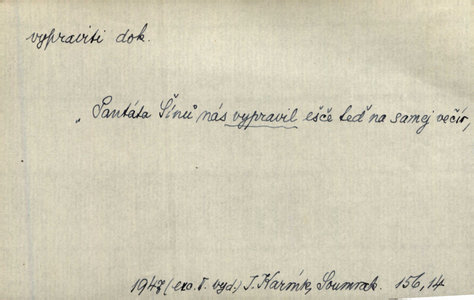 vypraviti dok.
„Pantáta Šínů nás vypravil ešče teď na samej večír,
1947 (exc. T. vyd.) J. Karník, Soumrak. 156,14